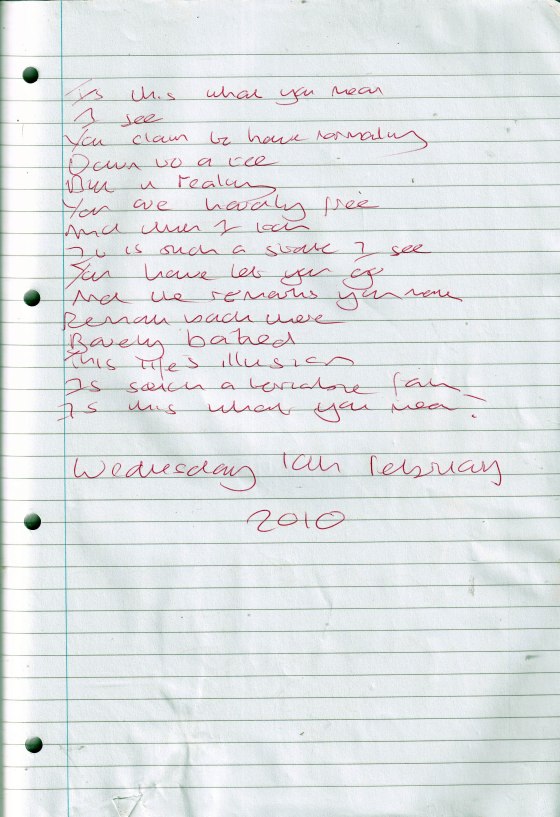 Is this what you mean
I see
You claim to have normality
Down to a tee
But in reality
You are hardly free
And when I look
It is such a state I see
You have let you go
And the remains you
Remain back there
Barely bathed
This life's illusion
Is such a fall
Is this what you mean?
Wednesday 10th February
2010